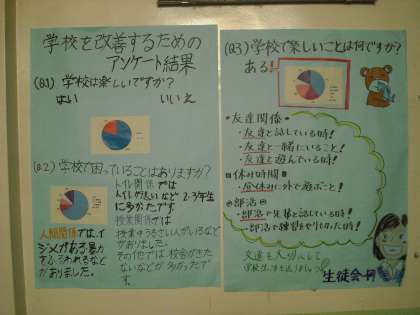 学校を改善するための
アンケート結果
(Q1) 学校は楽しいですか?
はい いいえ
(Q2) 学校で困っていることはありますか?
トイレ関係では
トイレが汚いなど2・3年生
に多かったです。
授業関係では
授業中うるさい人がいるなど
がありました。
その他では校舎がきた
ないなどが多かったで
す。
人間関係では、イ
ジメがある暴力
をふるわれるなど
がありました。
(Q3) 学校で楽しいことは何ですか?
ある!!
・友達関係・
・友達と話している時!
・友達と一緒にいること!
・友達と遊んでいる時!
休み時間
・昼休みに外で遊ぶこと!
部活
・部活で先輩と話している時!
・部活で練習をやりきった時!
友達を大切にして
学校生活を送りましょう
生徒会